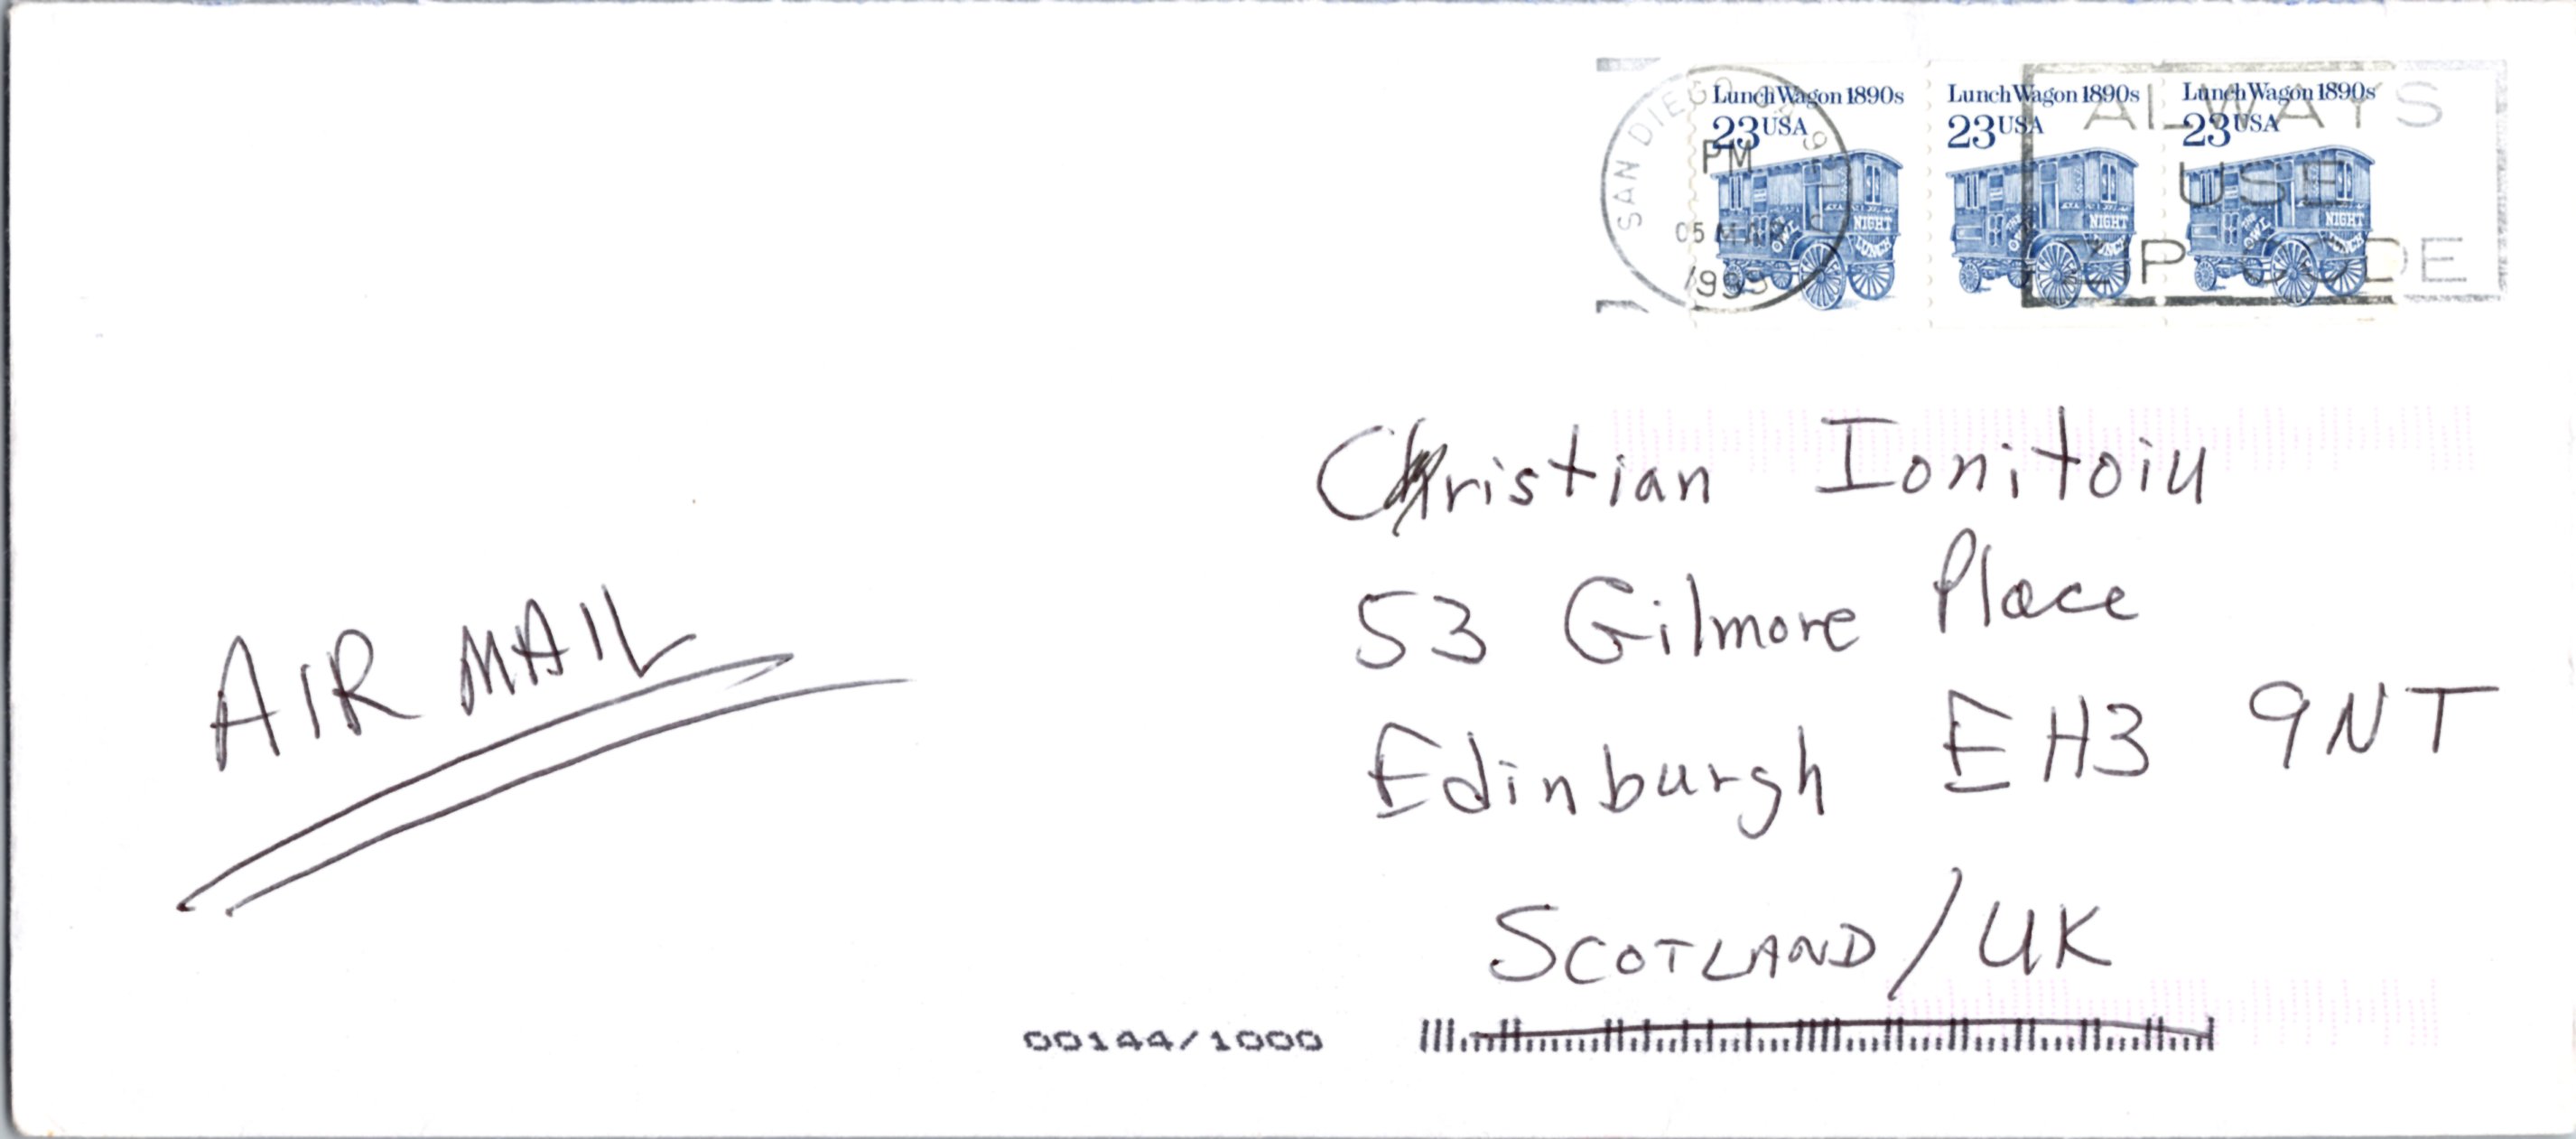 Lunch Wagon 1890s Lunch Wagon 1890s Lunch Wagon 1890s
23 USA 23 USA 23 USA
NIGHT NIGHT NIGHT
THE OWL LUNCH
SAN DIEGO
PM
05 MAR
1995
ALWAYS
USE
ZIP CODE
Christian Ionitoiu
53 Gilmore Place
Edinburgh EH3 9NT
SCOTLAND/UK
AIR MAIL
00144/1000